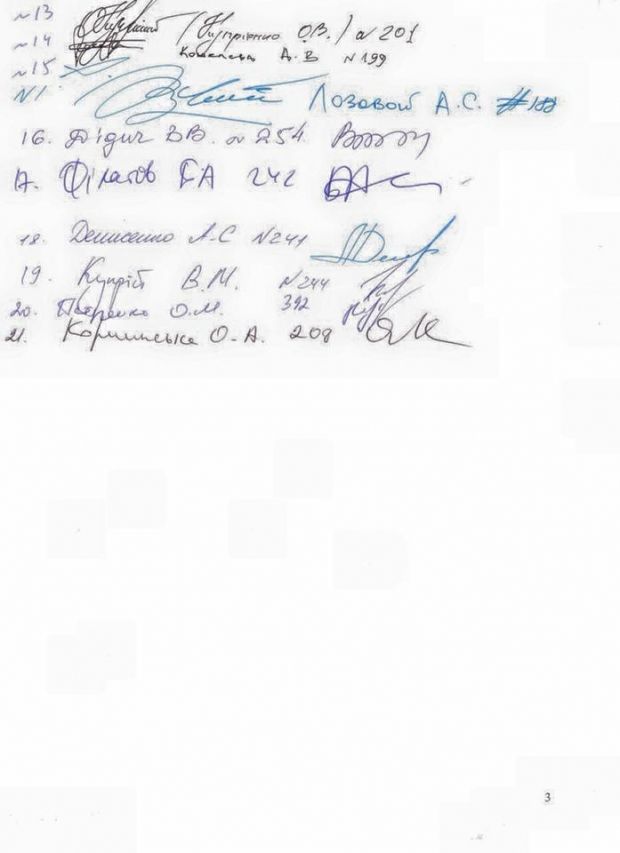 №13 (Купрієнко О.В.) №201
№14 Кошелєва А.В №199
№15
№1. Лозовой А.С. #188
16. Дідич В.В. №254
17. Філатов ЄА 242
18. Денисенко А.С №241
19. Купрій В.М. №244
20. Петренко О.М. 392
21. Кормишська О.А. 208
3